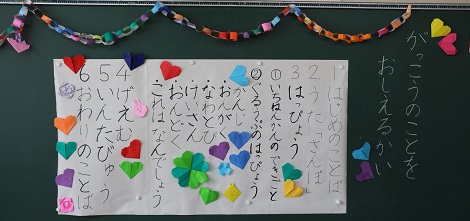 がっこうのことを
おしえるかい
1 はじめのことば
2 うた「さんぽ」
3 はっぴょう
① いちねんかんのできごと
② ぐるうぷのはっぴょう
・かんじ
・おりがみ
・なわとび
・けいさん
・おんどく
・これはなんでしょう
4 げえむ
5 いんたびゅう
6 おわりのことば